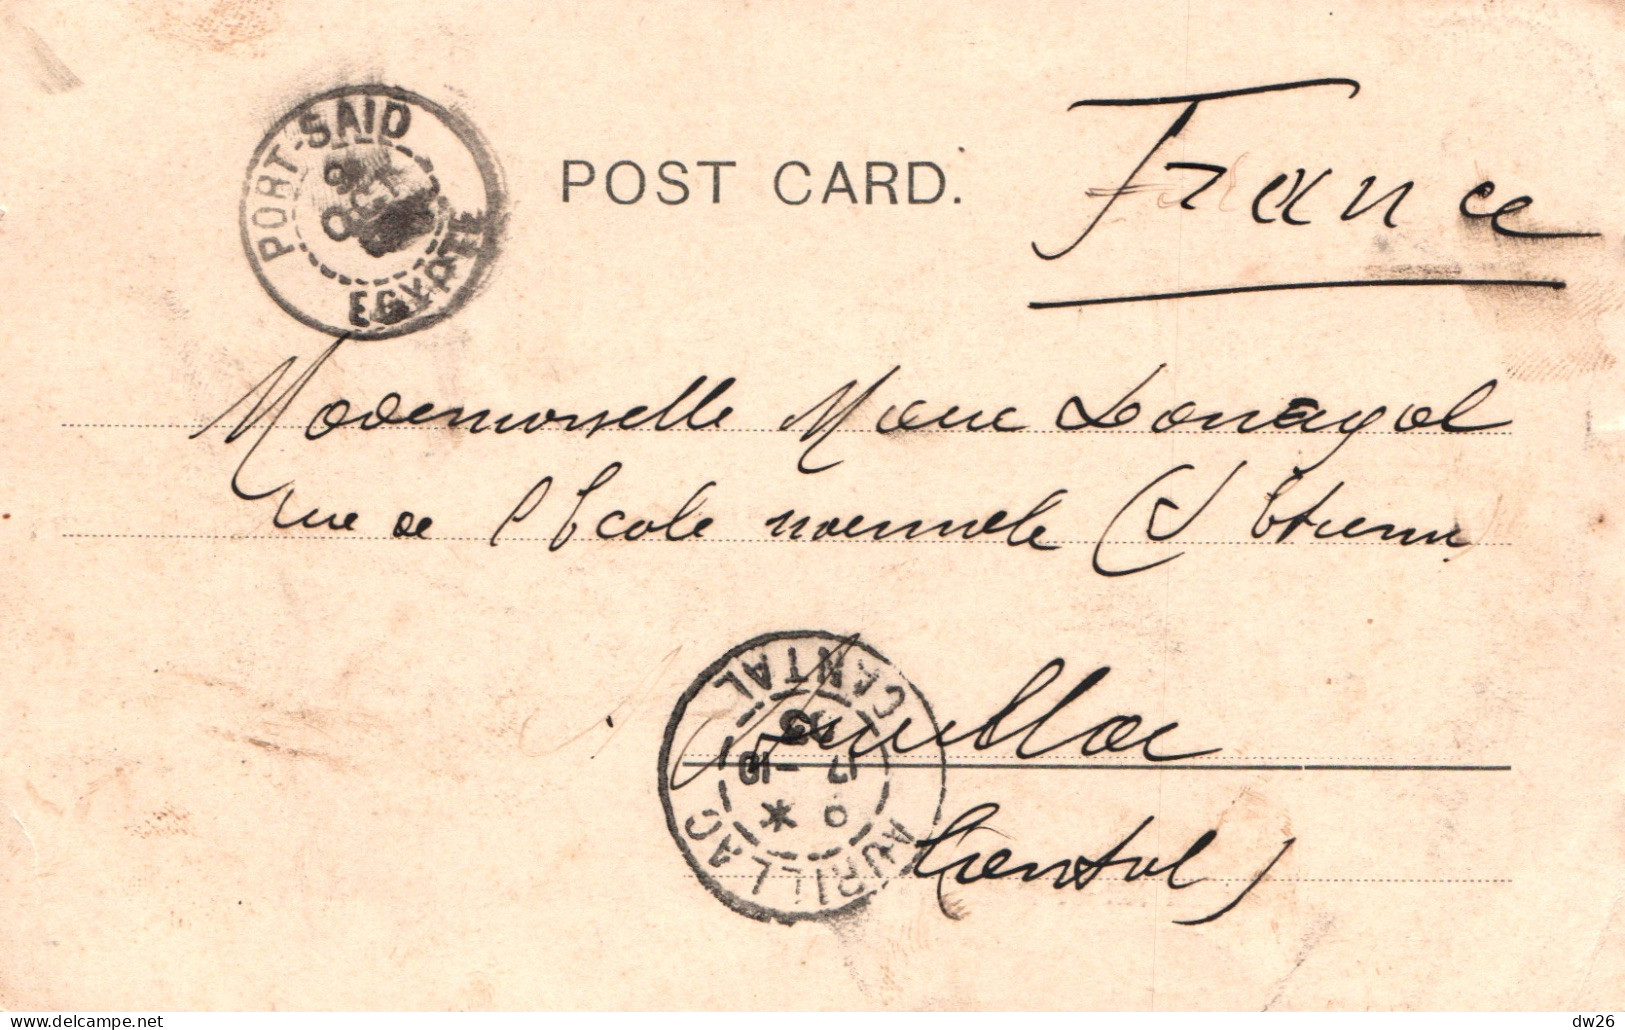 PORT-SAID
EGYPTE
POST CARD.
France
Mademoiselle Marie
rue de l'Ecole normale (St Etienne)
Aurillac
Cantal)
AURILLAC
CANTAL
17 -10
03
delcampe.net
dw26